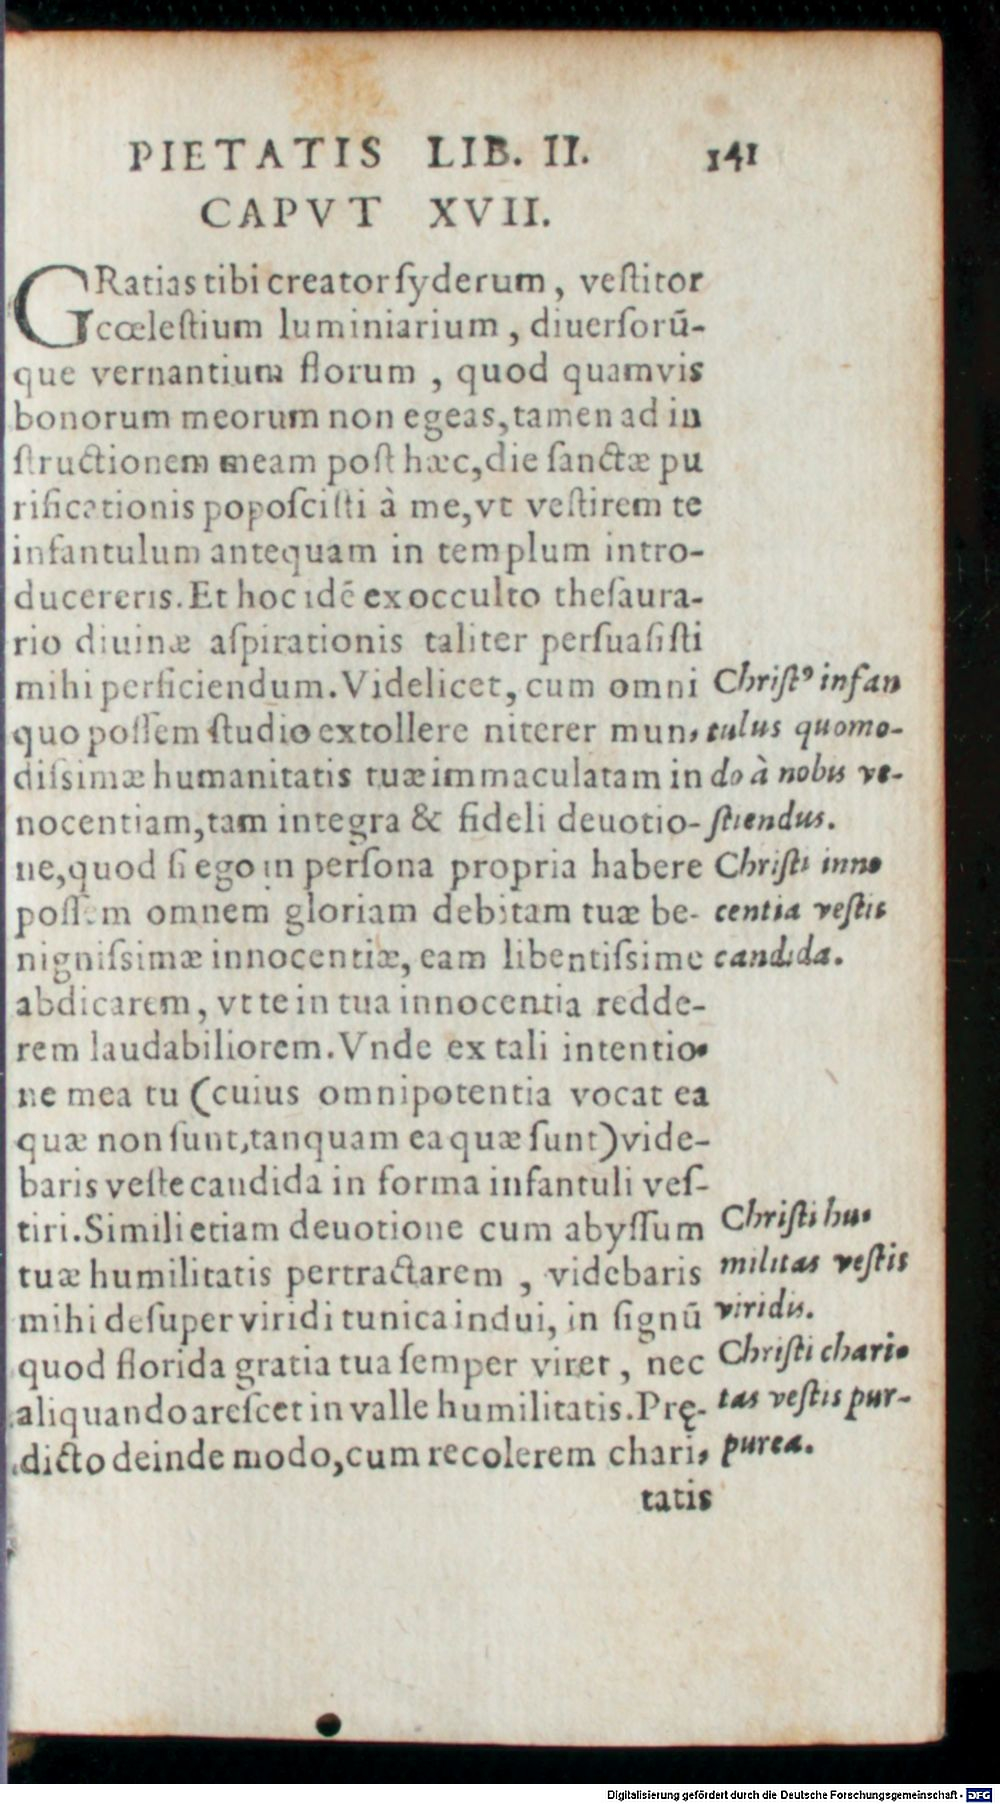 PIETATIS LIB. II. 141
CAPVT XVII.
GRatias tibi creator ſyderum, veſtitor
cœleſtium luminiarium, diuerſorũ-
que vernantium florum, quod quamvis
bonorum meorum non egeas, tamen ad in
ſtructionem meam poſt hæc, die ſanctæ pu
rificationis popoſciſti à me, vt veſtirem te
infantulum antequam in templum intro-
ducereris. Et hoc idẽ ex occulto theſaura-
rio diuinæ aſpirationis taliter perſuaſiſti
mihi perficiendum. Videlicet, cum omni
quo poſſem ſtudio extollere niterer mun-
diſsimæ humanitatis tuæ immaculatam in
nocentiam, tam integra & fideli deuotio-
ne, quod ſi ego in perſona propria habere
poſſem omnem gloriam debitam tuæ be-
nigniſsimæ innocentiæ, eam libentiſsime
abdicarem, vt te in tua innocentia redde-
rem laudabiliorem. Vnde ex tali intentio-
ne mea tu (cuius omnipotentia vocat ea
quæ non ſunt, tanquam ea quæ ſunt) vide-
baris veſte candida in forma infantuli veſ-
tiri. Simili etiam deuotione cum abyſſum
tuæ humilitatis pertractarem, videbaris
mihi deſuper viridi tunica indui, in ſignũ
quod florida gratia tua ſemper viret, nec
aliquando areſcet in valle humilitatis. Prę-
dicto deinde modo, cum recolerem chari-
tatis
Chriſtꝰ infan
tulus quomo-
do à nobis ve-
ſtiendus.
Chriſti inno
centia veſtis
candida.
Chriſti hu-
militas veſtis
viridis.
Chriſti chari-
tas veſtis pur-
purea.
Digitalisierung gefördert durch die Deutsche Forschungsgemeinschaft - DFG